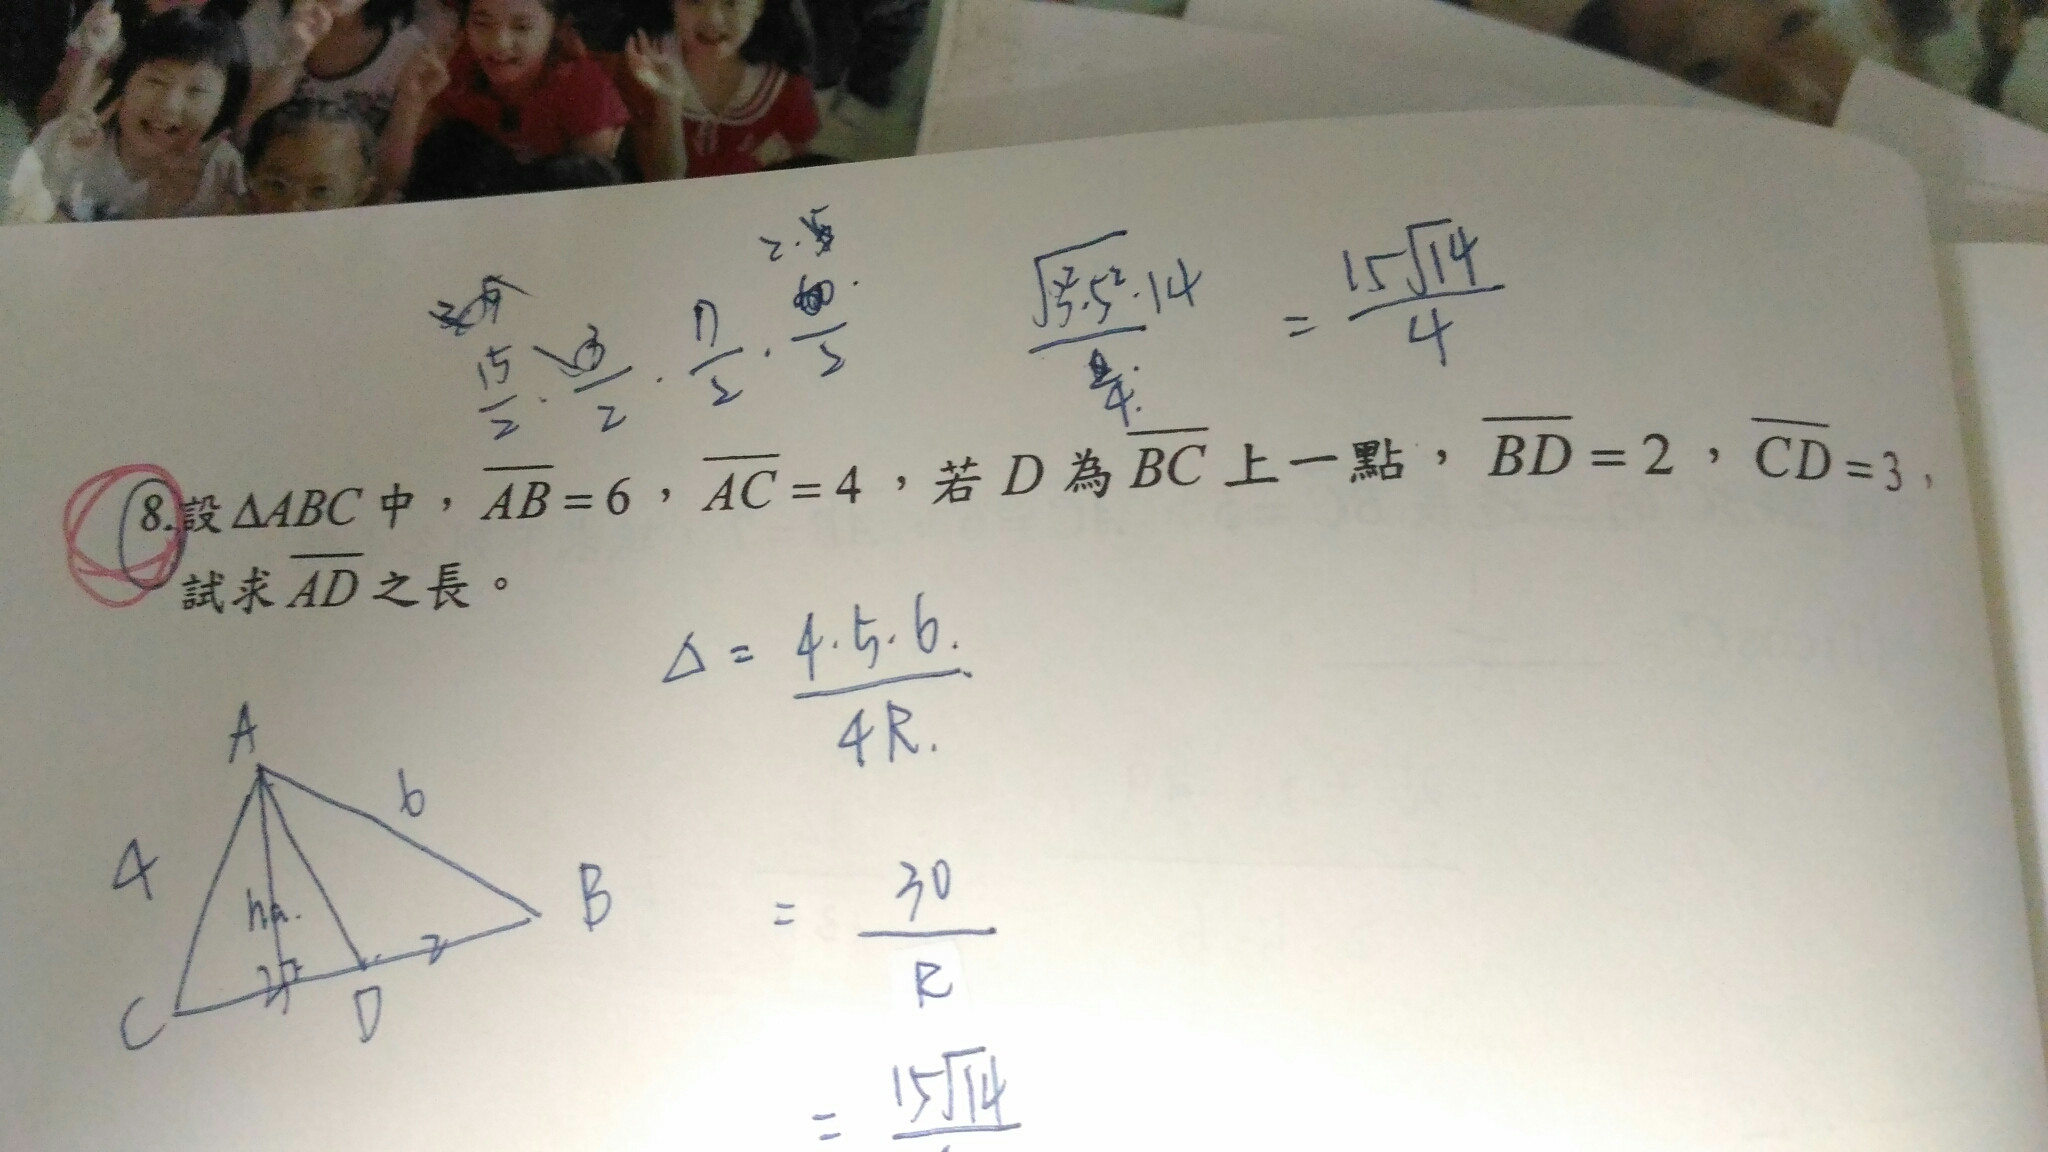 15/2 · 3/2 · /2 ·
√3²·5²·14 / 4. = 15√14 / 4
8.設ΔABC中，AB=6，AC=4，若D為BC上一點，BD=2，CD=3，
試求AD之長。
Δ = 4.5.6. / 4R.
A
6
4
ha.
B
2
C
D
= 30 / R
= 15√14